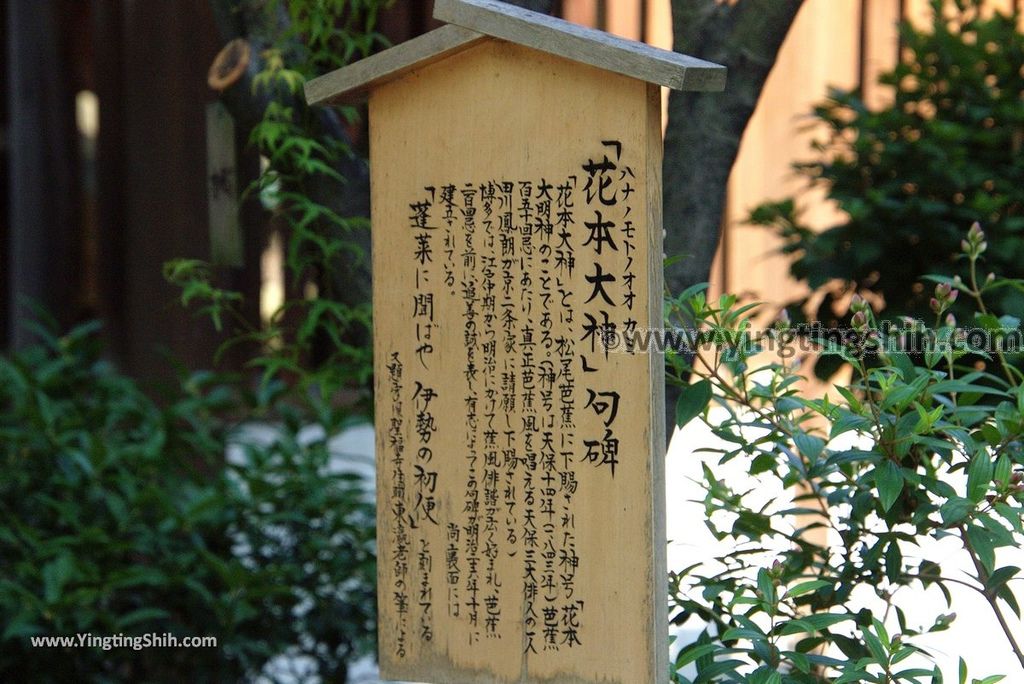 ハナノモトノオオカミ
「花本大神」句碑
「花本大神」とは、松尾芭蕉に下賜された神号「花本
大明神のことである。（神号は天保十四年（一八四三年）芭蕉
百五十回忌にあたり、真正芭蕉風を唱える天保三大俳人の一人
田川鳳朗が京二条家に請願し下賜されている）
博多では、江戸中期から明治にかけて蕉風俳諧が広く好まれ、芭蕉
二百回忌を前に、追善の誠を表し有志によってこの句碑が明治二十五年十月に
建立されている。
尚、裏面には
「蓬莱に聞ばや 伊勢の初便」と刻まれている
聖福寺住職東瀛老師の筆による
©www.YingtingShih.com
www.YingtingShih.com